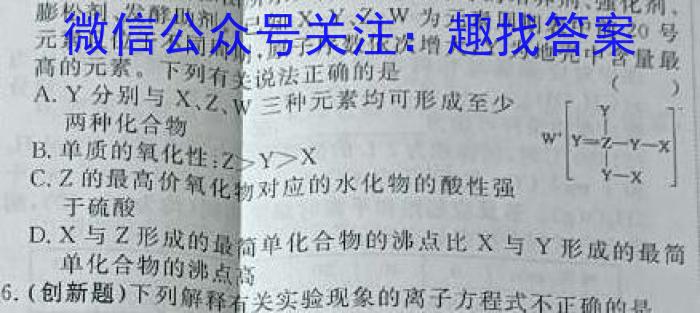 膨松剂、发酵
强化剂。
X、Y、Z、W 为元
20号
元素
微信公众号关注：趣找答案
含量最
高的元素。下列有关说法正确的是
(　　)
A. Y 分别与 X、Z、W 三种元素均可形成至少
两种化合物
B. 单质的氧化性:Z>Y>X
C. Z 的最高价氧化物对应的水化物的酸性强
于硫酸
D. X 与 Z 形成的最简单化合物的沸点比 X 与 Y 形成的最简
单化合物的沸点高
Y
W⁺ Y=Z—Y—X
Y—X
6. (创新题)下列解释有关实验现象的离子方程式不正确的是